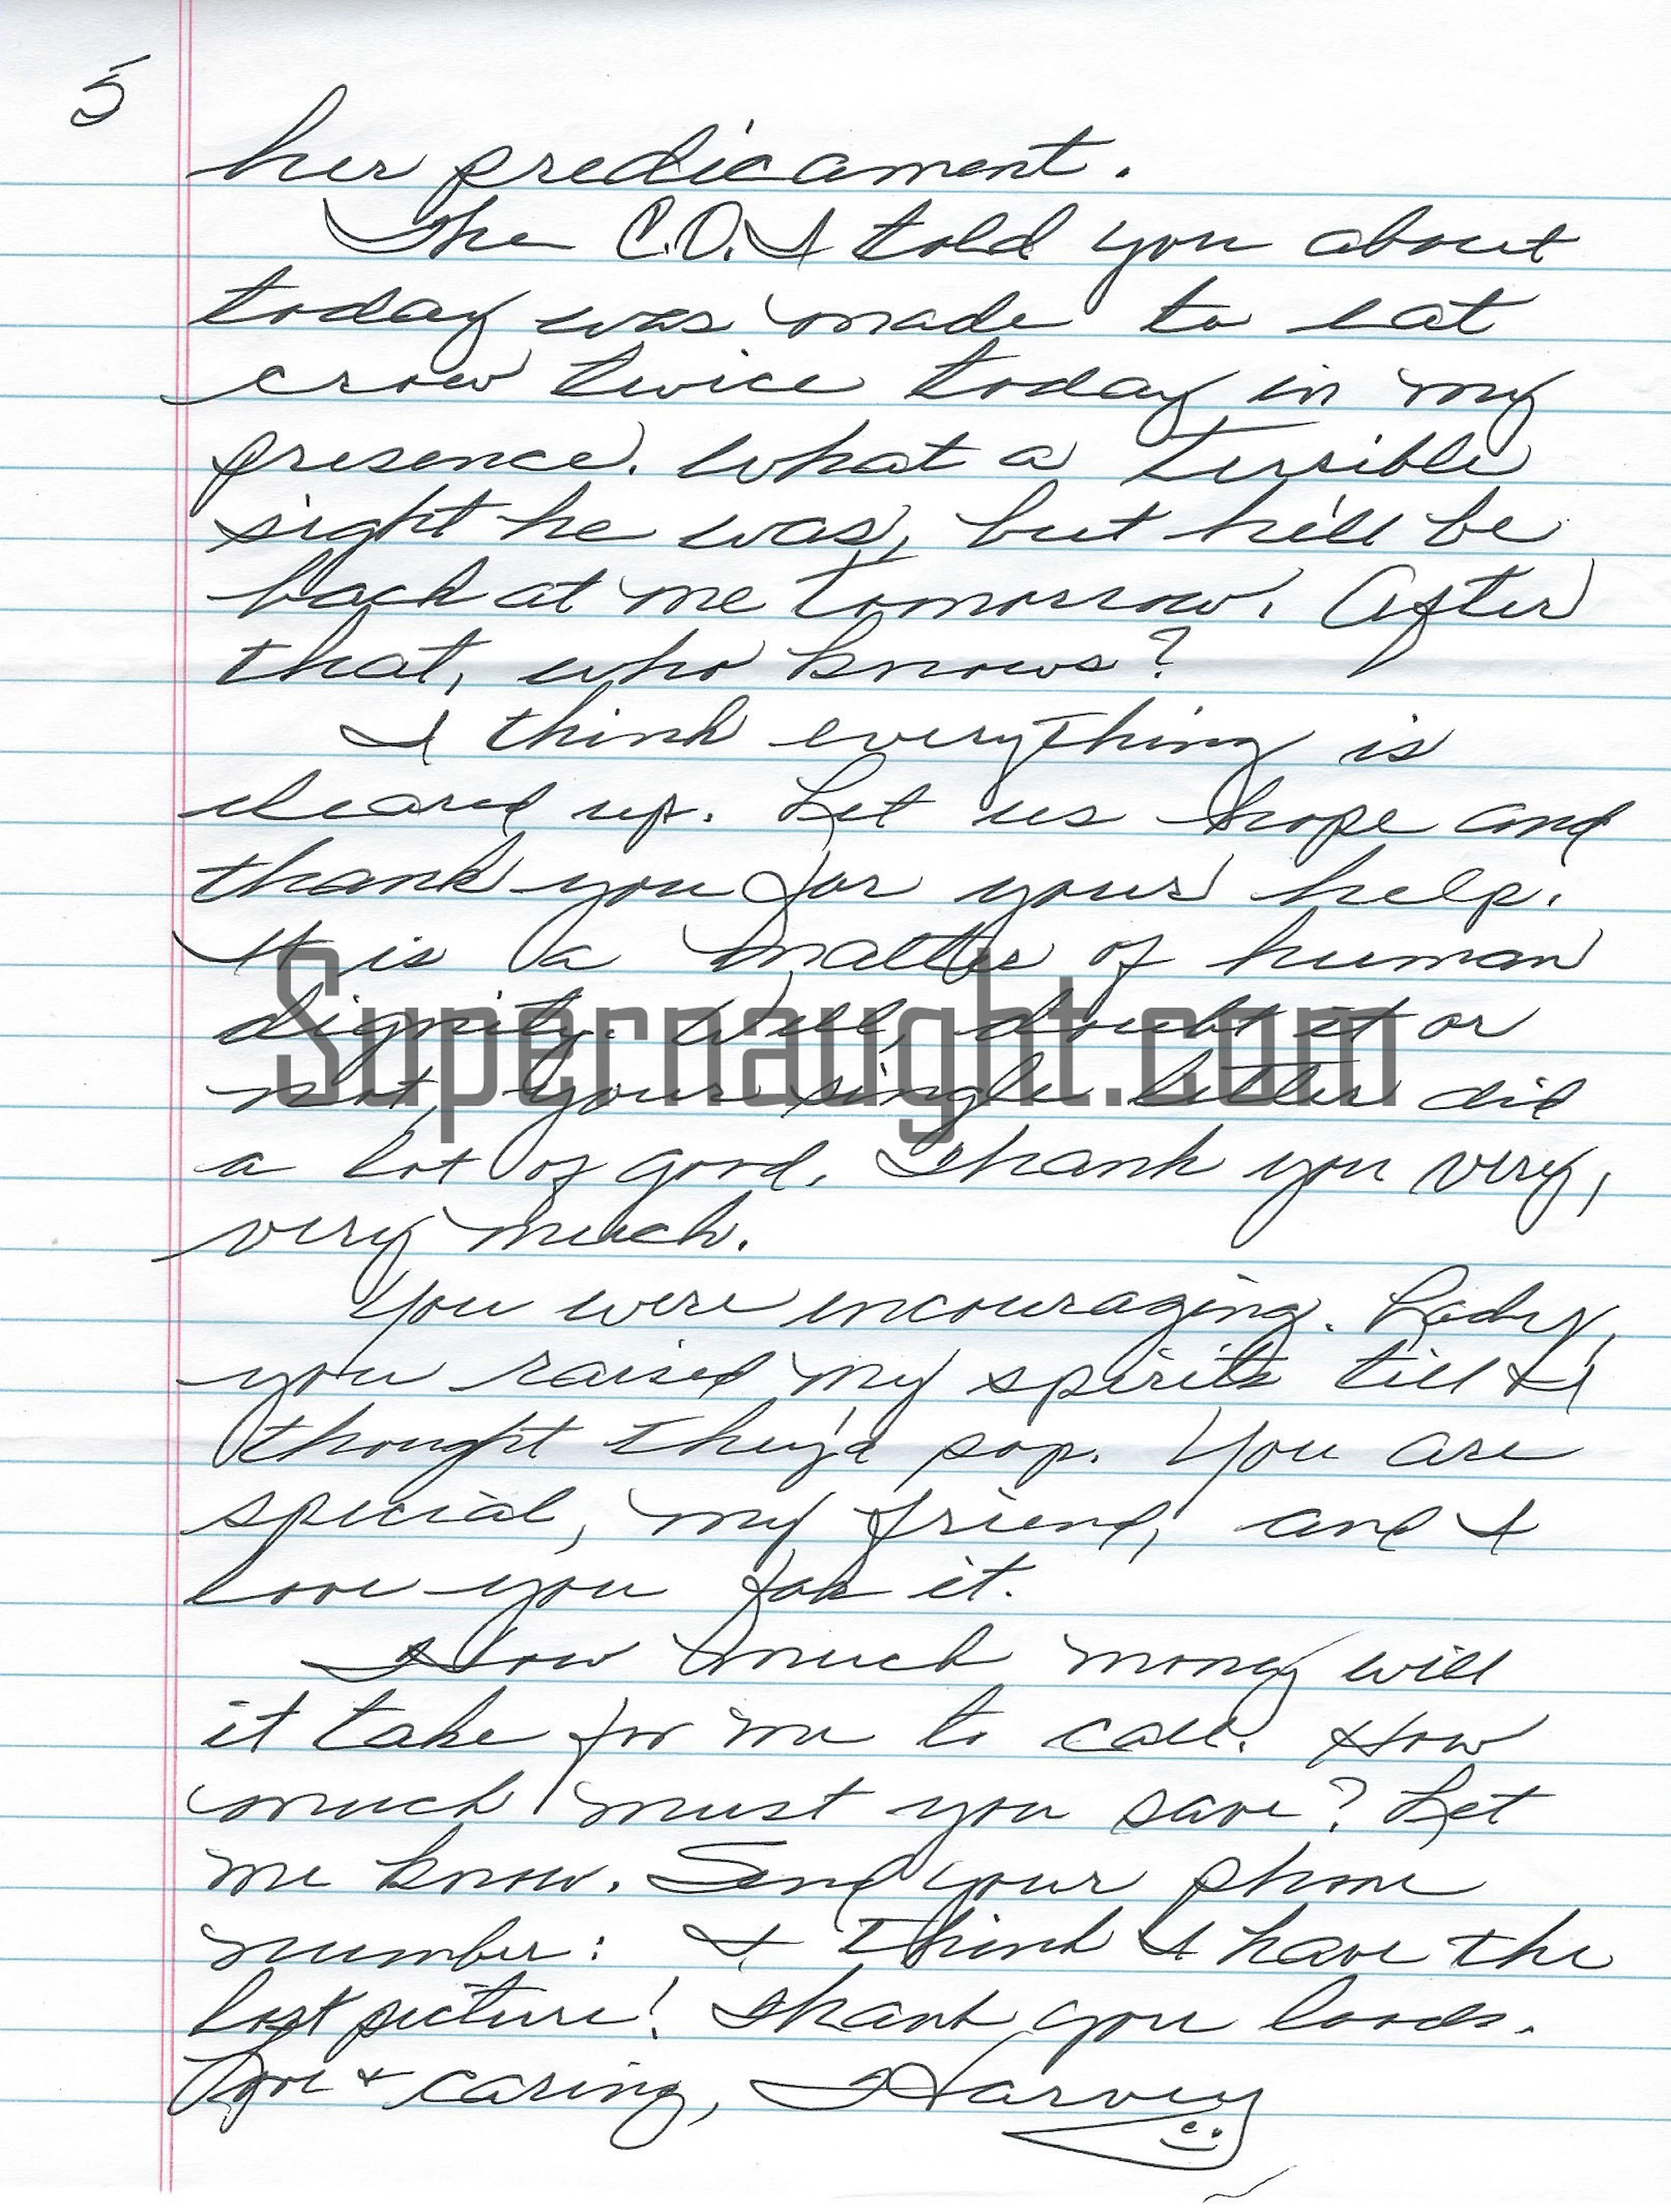 5
her predicament.
The C.O. I told you about
today was made to eat
crow twice today in my
presence. What a terrible
sight he was, but he'll be
back at me tomorrow. After
that, who knows?
I think everything is
cleared up. Let us hope and
thank you for your help.
It is a matter of human
dignity. Well, doubt it or
not, your single letter did
a lot of good. Thank you very,
very much.
You were encouraging. Lady,
you raised my spirits till I
thought they'd pop. You are
special, my friend, and I
love you for it.
How much money will
it take for me to call. How
much must you save? Let
me know. Send your phone
number: I think I have the
last picture! Thank you loads.
Love + caring, Harvey
Supernaught.com